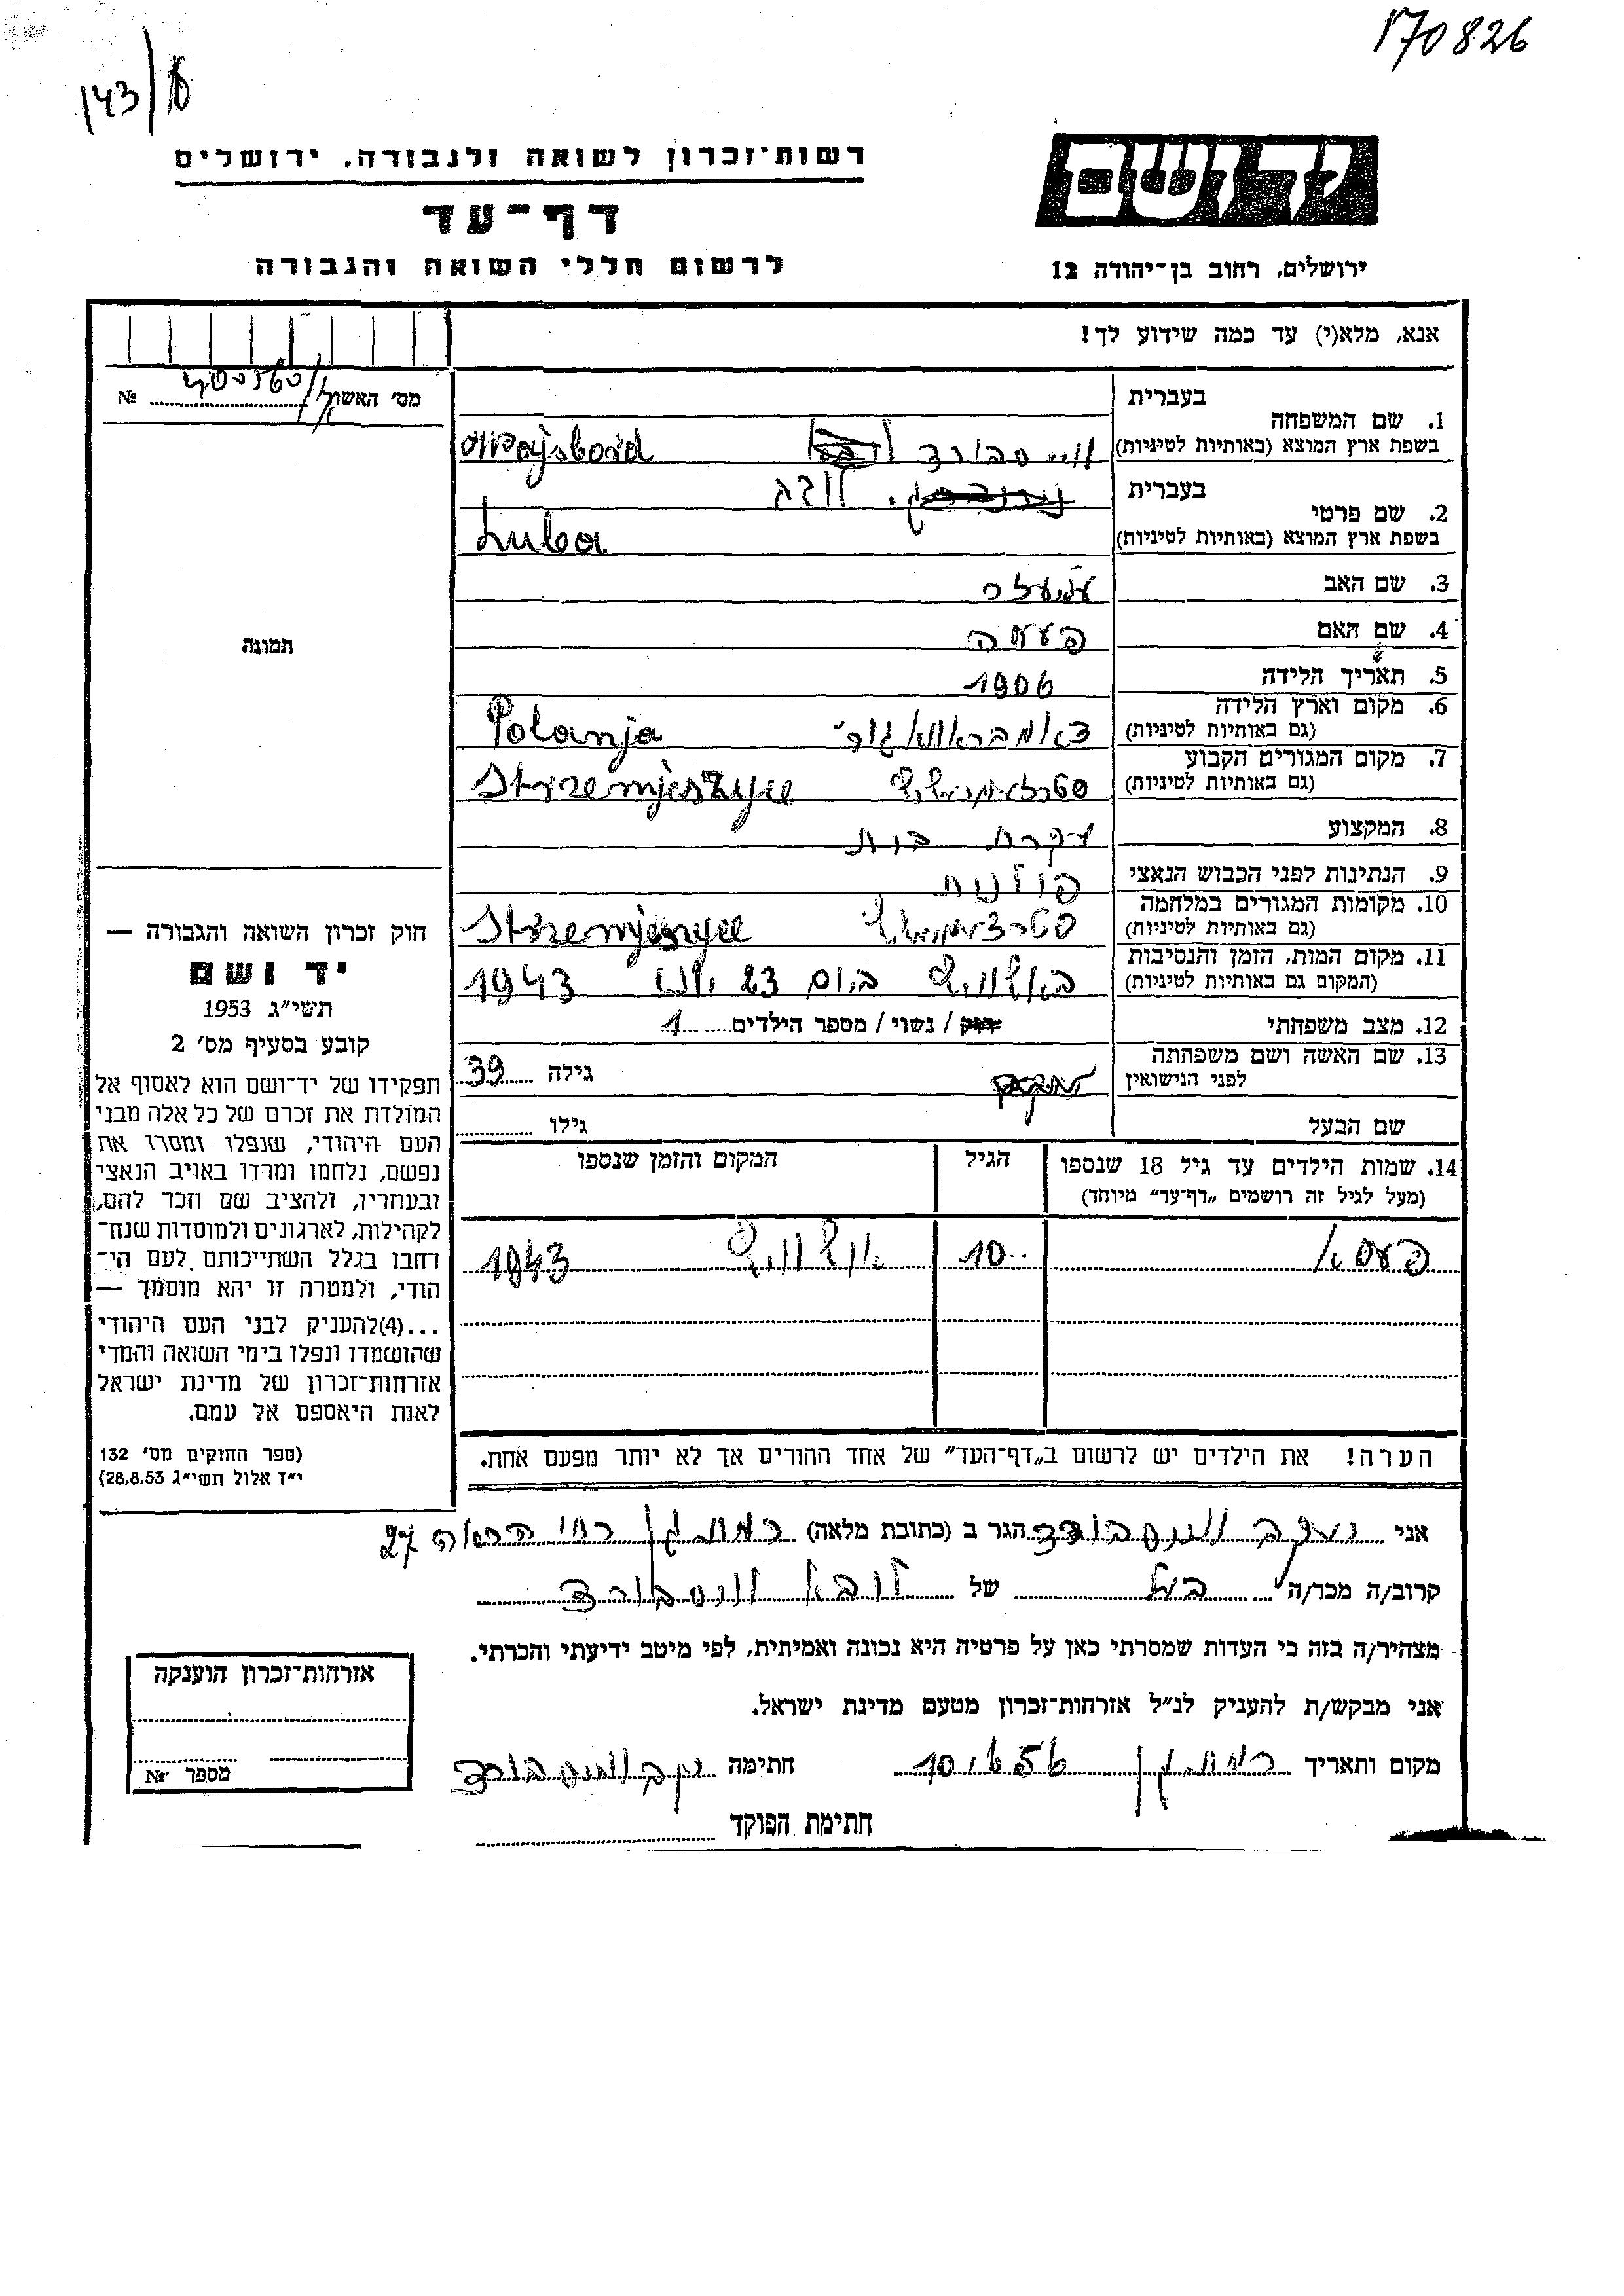 170826
143/
רשות־זכרון לשואה ולגבורה, ירושלים
יד ושם
דף־עד
לרשום חללי השואה והגבורה
ירושלים, רחוב בן־יהודה 12
אנא, מלא(י) עד כמה שידוע לך!
מס׳ האשור
№
בעברית
1. שם המשפחה
בשפת ארץ המוצא (באותיות לטיניות)
וויסבורד
Wajsbord
בעברית
2. שם פרטי
בשפת ארץ המוצא (באותיות לטיניות)
Luba
3. שם האב
4. שם האם
5. תאריך הלידה 1906
6. מקום וארץ הלידה
(גם באותיות לטיניות)
דאמבראווא גור׳ Polanja
7. מקום המגורים הקבוע
(גם באותיות לטיניות)
8. המקצוע עקרת בית
9. הנתינות לפני הכבוש הנאצי פולנית
10. מקומות המגורים במלחמה
(גם באותיות לטיניות)
11. מקום המות, הזמן והנסיבות
(המקום גם באותיות לטיניות)
באושוויץ ביום 23 יוני 1943
12. מצב משפחתי
רווק / נשוי / מספר הילדים 1
13. שם האשה ושם משפחתה
לפני הנישואין
גילה 39
שם הבעל גילו
14. שמות הילדים עד גיל 18 שנספו
(מעל לגיל זה רושמים „דף־עד״ מיוחד)
הגיל
המקום והזמן שנספו
פעסא 10 אושוויץ 1943
הערה! את הילדים יש לרשום ב„דף־העד״ של אחד ההורים אך לא יותר מפעם אחת.
תמונה
חוק זכרון השואה והגבורה —
יד ושם
תשי״ג 1953
קובע בסעיף מס׳ 2
תפקידו של יד־ושם הוא לאסוף אל
המולדת את זכרם של כל אלה מבני
העם היהודי, שנפלו ומסרו את
נפשם, נלחמו ומרדו באויב הנאצי
ובעוזריו, ולהציב שם וזכר להם,
לקהילות, לארגונים ולמוסדות שנח־
רחבו בגלל השתייכותם לעם הי־
הודי, ולמטרה זו יהא מוסמך —
...(4)להעניק לבני העם היהודי
שהושמדו ונפלו בימי השואה והמרי
אזרחות־זכרון של מדינת ישראל
לאות היאספם אל עמם.
(ספר החוקים מס׳ 132
י״ז אלול תשי״ג 28.8.53)
אני יעקב וויסבורד הגר ב (כתובת מלאה) רמת גן רח׳ הרואה 27
קרוב/ה מכר/ה בעל של לובא וויסבורד
מצהיר/ה בזה כי העדות שמסרתי כאן על פרטיה היא נכונה ואמיתית, לפי מיטב ידיעתי והכרתי.
אני מבקש/ת להעניק לנ״ל אזרחות־זכרון מטעם מדינת ישראל.
מקום ותאריך רמת גן 10.6.56 חתימה יעקב וויסבורד
חתימת הפוקד
אזרחות־זכרון הוענקה
מספר №